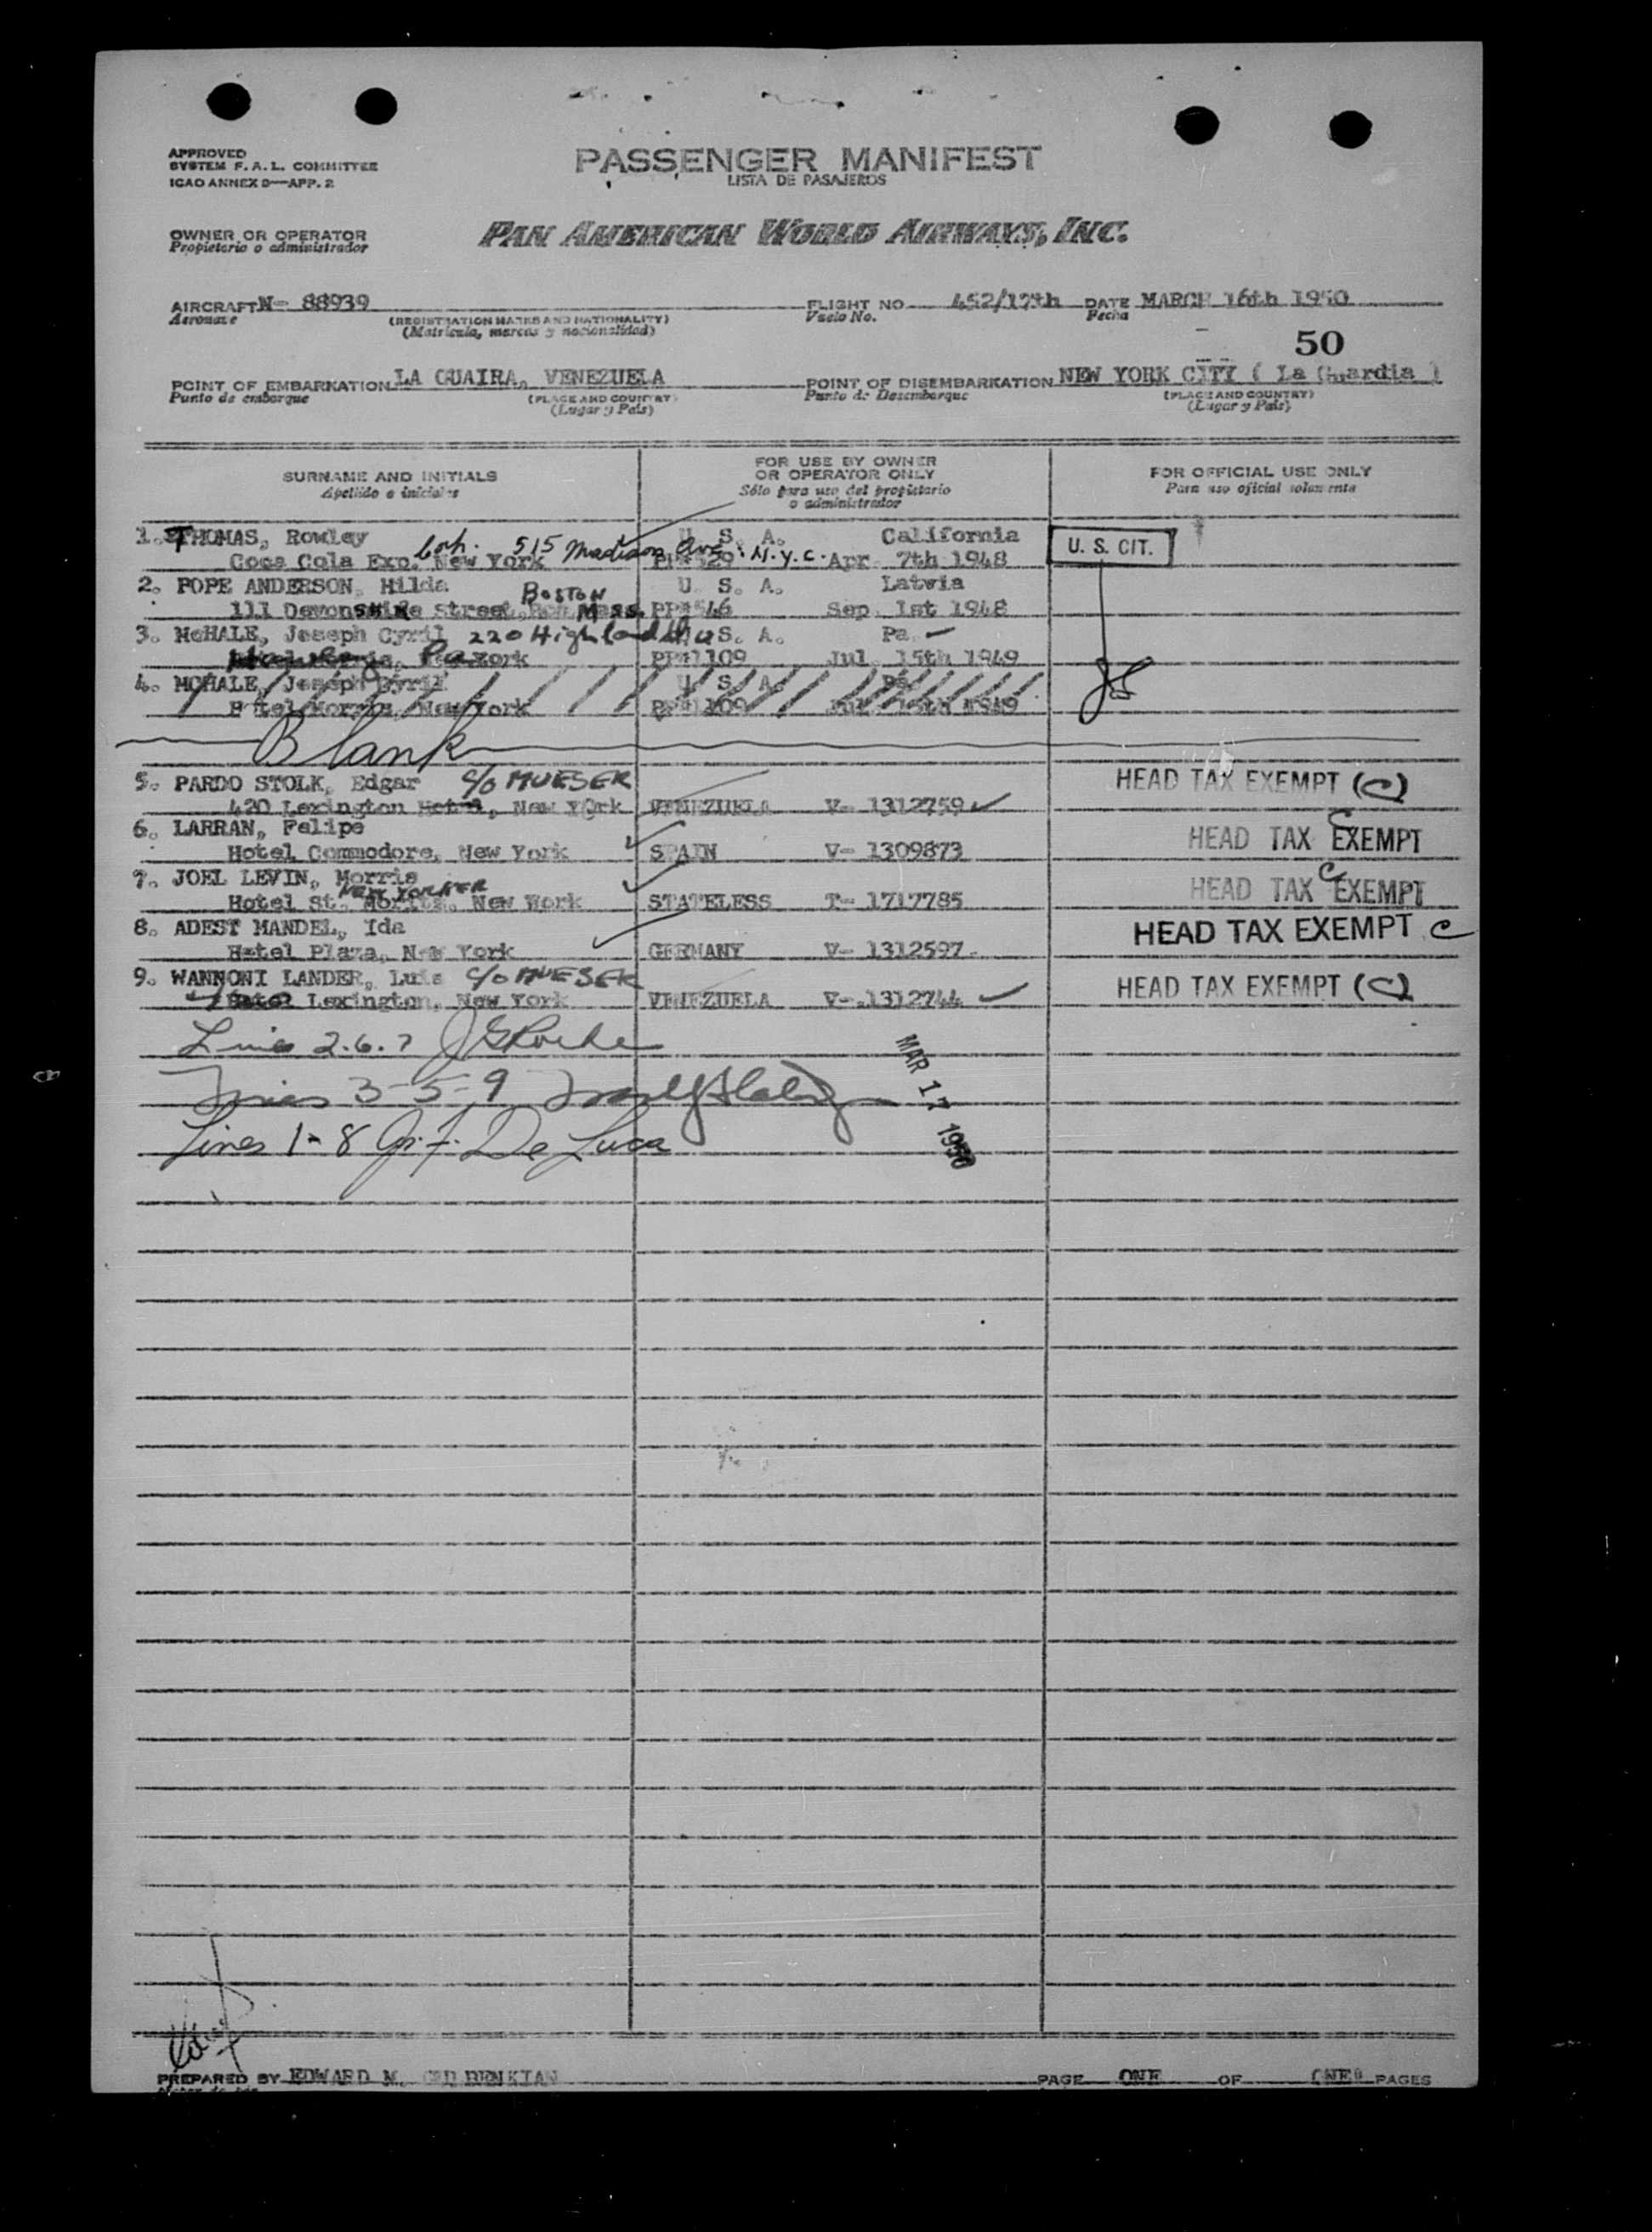 APPROVED
SYSTEM F.A.L. COMMITTEE
ICAO ANNEX 9—APP. 2
PASSENGER MANIFEST
LISTA DE PASAJEROS
OWNER OR OPERATOR
Propietario o administrador
PAN AMERICAN WORLD AIRWAYS, INC.
AIRCRAFT N- 88939 FLIGHT NO 452/17th DATE MARCH 16th 1950
Aeronave (REGISTRATION MARKS AND NATIONALITY) Vuelo No. Fecha
(Matrícula, marcas y nacionalidad)
50
POINT OF EMBARKATION LA GUAIRA, VENEZUELA POINT OF DISEMBARKATION NEW YORK CITY ( La Guardia )
Punto de embarque (PLACE AND COUNTRY) Punto de Desembarque (PLACE AND COUNTRY)
(Lugar y País) (Lugar y País)
SURNAME AND INITIALS FOR USE BY OWNER OR OPERATOR ONLY FOR OFFICIAL USE ONLY
Apellido e iniciales Sólo para uso del propietario o administrador Para uso oficial solamente
1. THOMAS, Rowley U. S. A. California
Coca Cola Exp. New York Corp. 515 Madison Ave. N.Y.C. Apr 7th 1948 U. S. CIT.
2. POPE ANDERSON, Hilda U. S. A. Latvia
111 Devonshire Street, BOSTON Mass. PP#546 Sep. 1st 1948
3. McHALE, Joseph Cyril 220 Highland U.S. A. Pa.
Pa. York PP#1109 Jul 15th 1949
4. MCHALE, Joseph Cyril U. S. A. Pa.
Hotel Morris, New York PP#1109 Jul 15th 1949
Blank
5. PARDO STOLK, Edgar C/O MUESER HEAD TAX EXEMPT (C)
420 Lexington Hotel, New York VENEZUELA V- 1312759
6. LARRAN, Felipe HEAD TAX EXEMPT C
Hotel Commodore, New York SPAIN V- 1309873
7. JOEL LEVIN, Morris HEAD TAX EXEMPT C
Hotel St. Moritz, New York NEW YORKER STATELESS T- 1717785
8. ADEST MANDEL, Ida HEAD TAX EXEMPT C
Hotel Plaza, New York GERMANY V- 1312597
9. WANNONI LANDER, Luis C/O MUESER HEAD TAX EXEMPT (C)
Hotel Lexington, New York VENEZUELA V- 1312744
Lines 2.6.7
Lines 3-5-9
MAR 17 1950
Lines 1-8 De Luca
PREPARED BY EDWARD M. PAGE ONE OF ONE PAGES